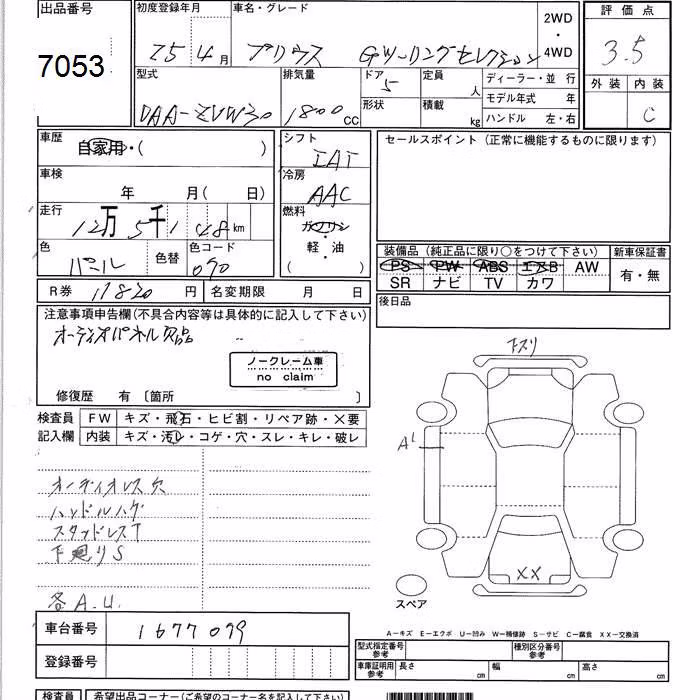 出品番号
7053
初度登録年月
25 4 月
車名・グレード
プリウス Gツーリングセレクション
2WD
・
4WD
評価点
3.5
外装 内装
C
型式
DAA-ZVW30
排気量
1800 CC
ドア
5
形状
定員
人
積載
kg
ディーラー・並行
モデル年式 年
ハンドル 左・右
車歴
自家用・( )
車検
年 月( 日)
走行
12万 5千 1 48 km
色
パール
色替
色コード
070
シフト
IAT
冷房
AAC
燃料
ガソリン
・
軽・油
( )
セールスポイント (正常に機能するものに限ります)
装備品 (純正品に限り○をつけて下さい)
PS PW ABS エアB AW
SR ナビ TV カワ
新車保証書
有・無
R券 11820 円
名変期限 月 日
後日品
注意事項申告欄(不具合内容等は具体的に記入して下さい)
オーディオパネル欠品
ノークレーム車
no claim
修復歴 有 〔箇所 〕
検査員
記入欄
FW キズ・飛石・ヒビ割・リペア跡・×要
内装 キズ・汚レ・コゲ・穴・スレ・キレ・破レ
オーディオレス穴
ハンドルハゲ
スタッドレスT
下廻りS
各A.U.
下スリ
A1
XX
スペア
車台番号 1677079
登録番号
A-キズ E-エクボ U-凹み W-補修跡 S-サビ C-腐食 XX-交換済
型式指定番号
参考
種別区分番号
参考
車庫証明用
参考
長さ cm 幅 cm 高さ cm
検査員
希望出品コーナー(ご希望のコーナー名を記入して下さい)